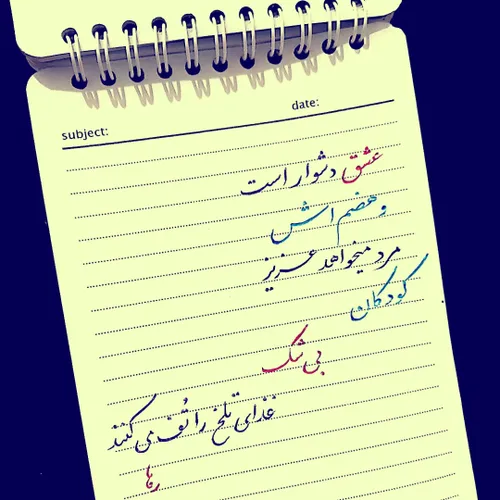 date:
subject:
عشق دشوار است
و هضم اش
مرد میخواهد عزیز
کودکان
بی شک
غذای تلخ را تُف می کنند
رها